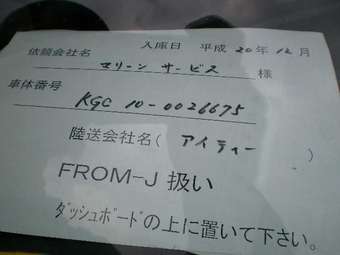 入庫日 平成 20年 12月
依頼会社名 マリーン サービス 様
車体番号 KGC 10-0026675
陸送会社名( アイティー )
FROM-J 扱い
ダッシュボードの上に置いて下さい。